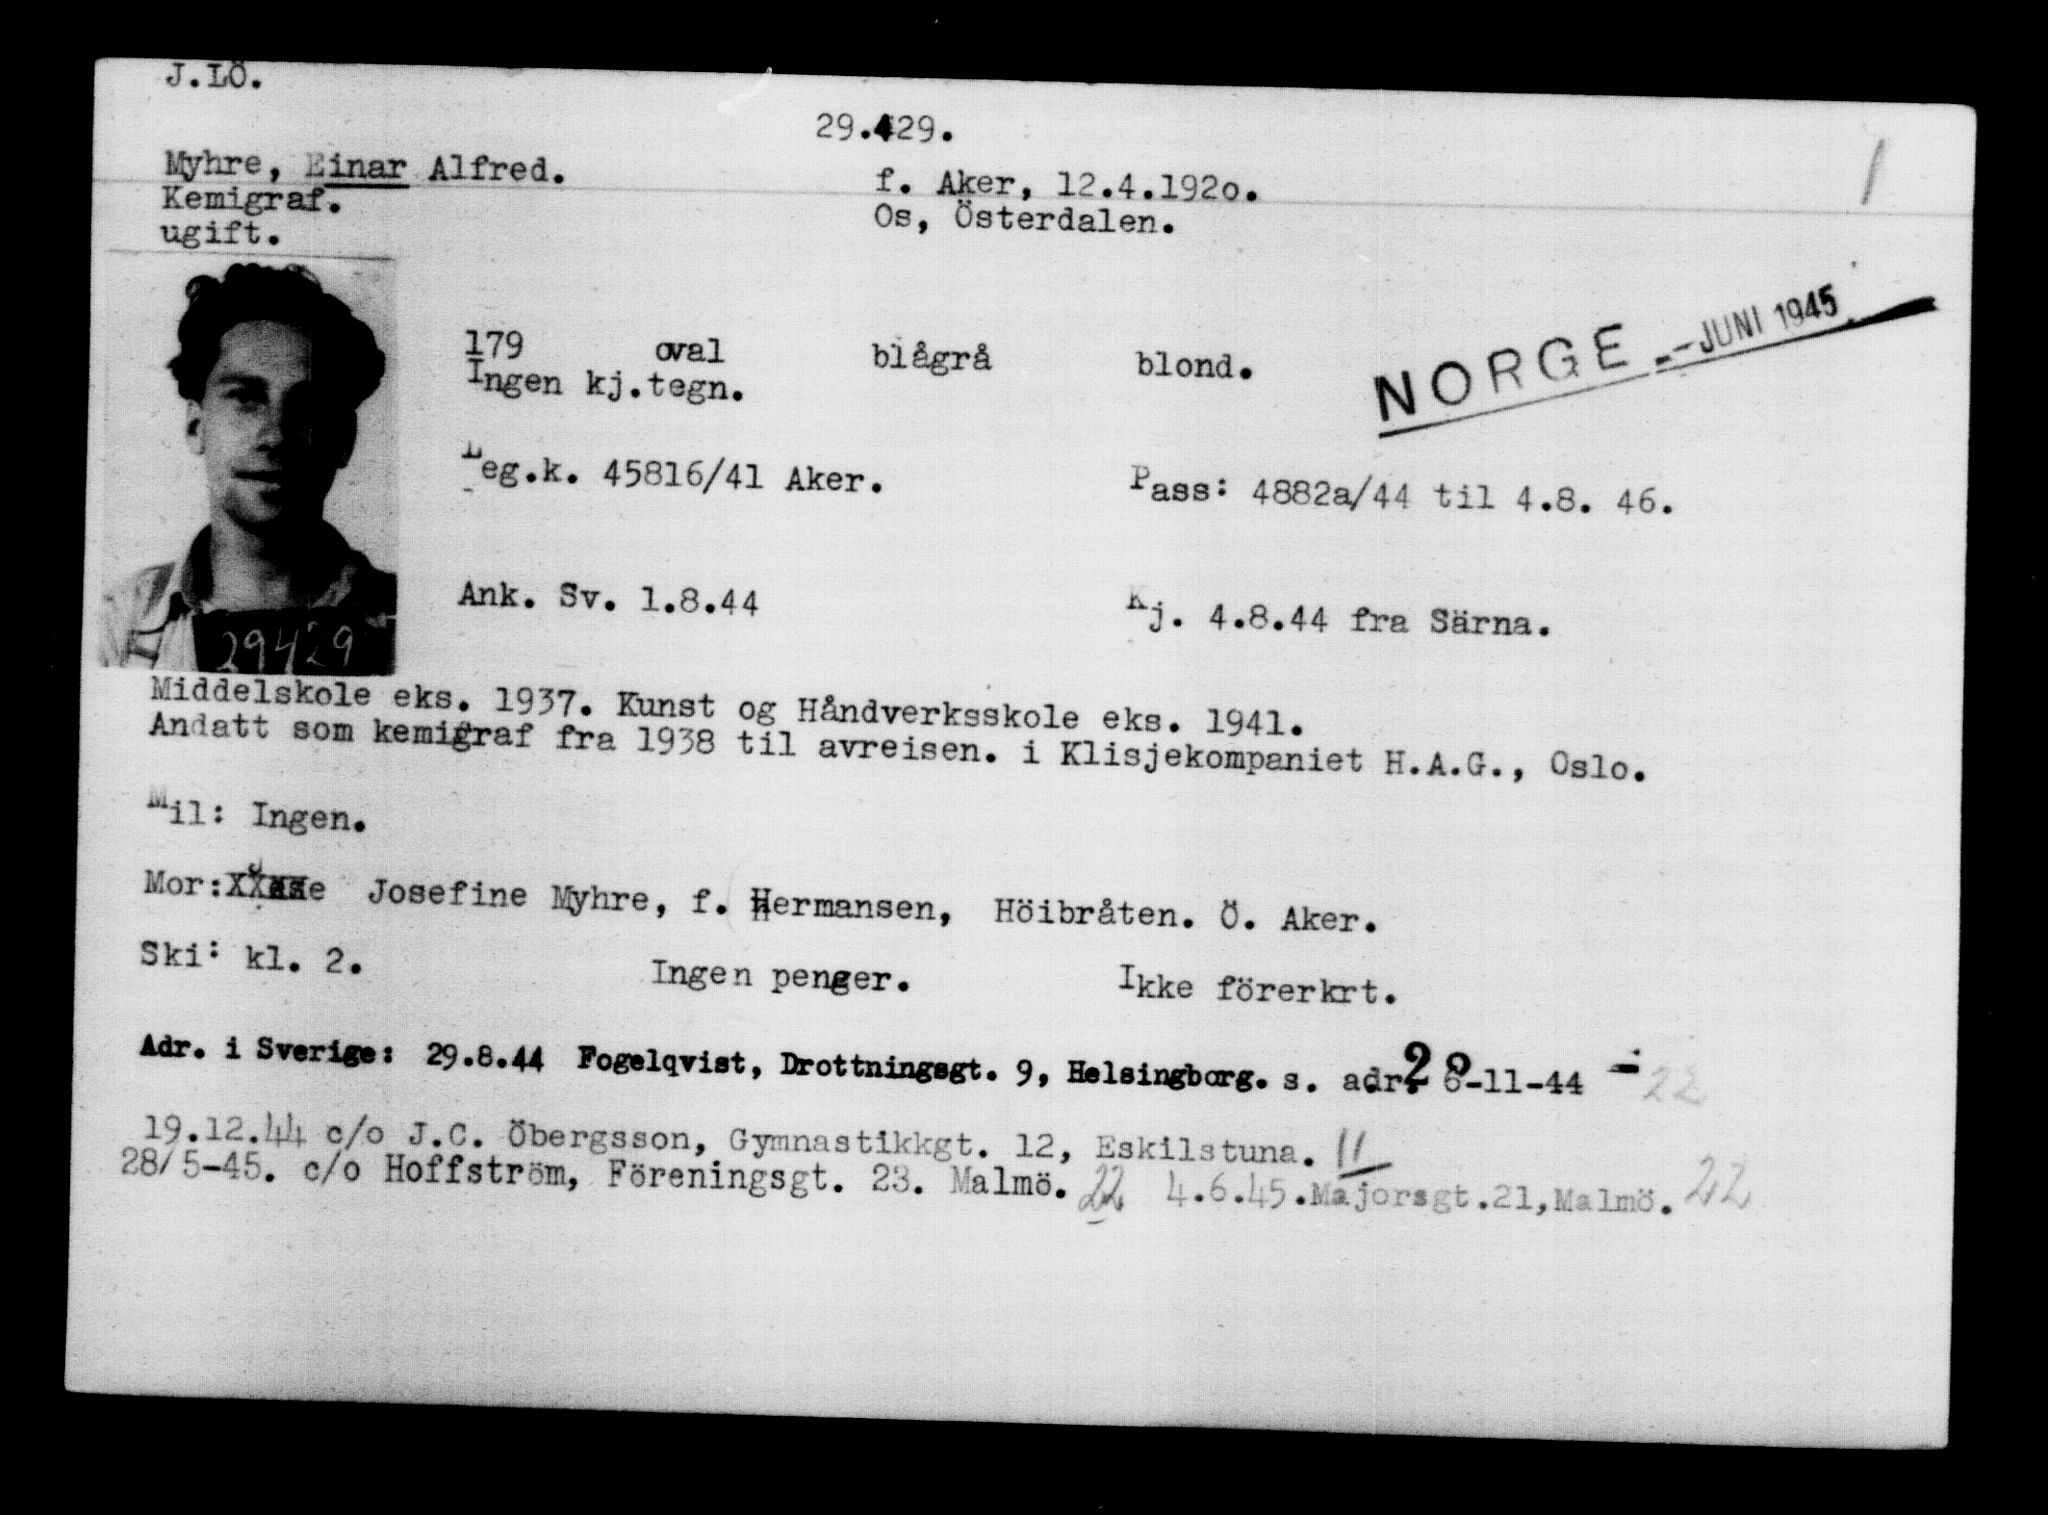 J.LÖ.
29.429.
Myhre, Einar Alfred.
f. Aker, 12.4.192o.
Kemigraf.
Os, Österdalen.
ugift.
NORGE - JUNI 1945
179 oval blågrå blond.
Ingen kj.tegn.
Leg.k. 45816/41 Aker.
Pass: 4882a/44 til 4.8. 46.
Ank. Sv. 1.8.44
Kj. 4.8.44 fra Särna.
29429
Middelskole eks. 1937. Kunst og Håndverksskole eks. 1941.
Andatt som kemigraf fra 1938 til avreisen. i Klisjekompaniet H.A.G., Oslo.
Mil: Ingen.
Mor: Josefine Myhre, f. Hermansen, Höibråten. Ö. Aker.
Ski: kl. 2.
Ingen penger.
Ikke förerkrt.
Adr. i Sverige: 29.8.44 Fogelqvist, Drottningsgt. 9, Helsingborg. s. adr. 28-11-44 - 22
19.12.44 c/o J.C. Öbergsson, Gymnastikkgt. 12, Eskilstuna. 11
28/5-45. c/o Hoffström, Föreningsgt. 23. Malmö. 22 4.6.45.Majorsgt.21,Malmö. 22